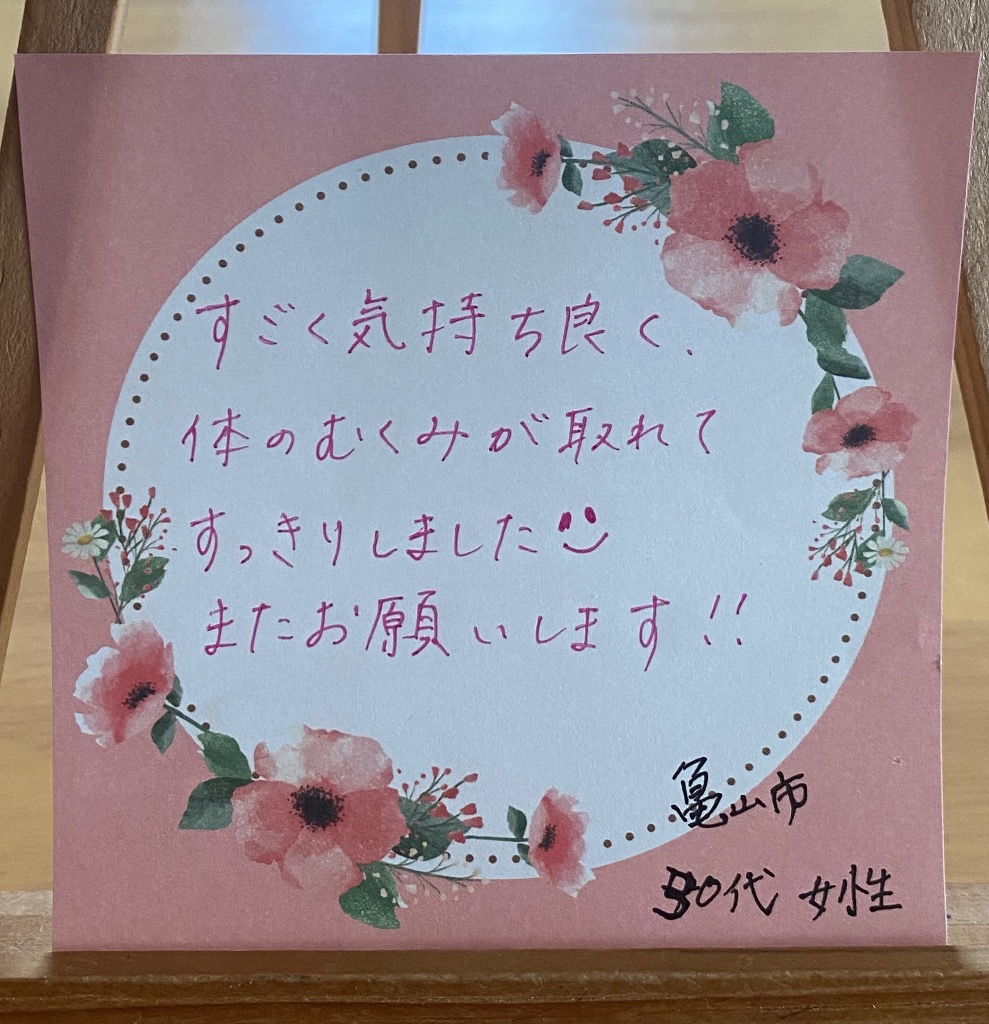 すごく気持ち良く、
体のむくみが取れて
すっきりしました
またお願いします!!
亀山市
代 女性